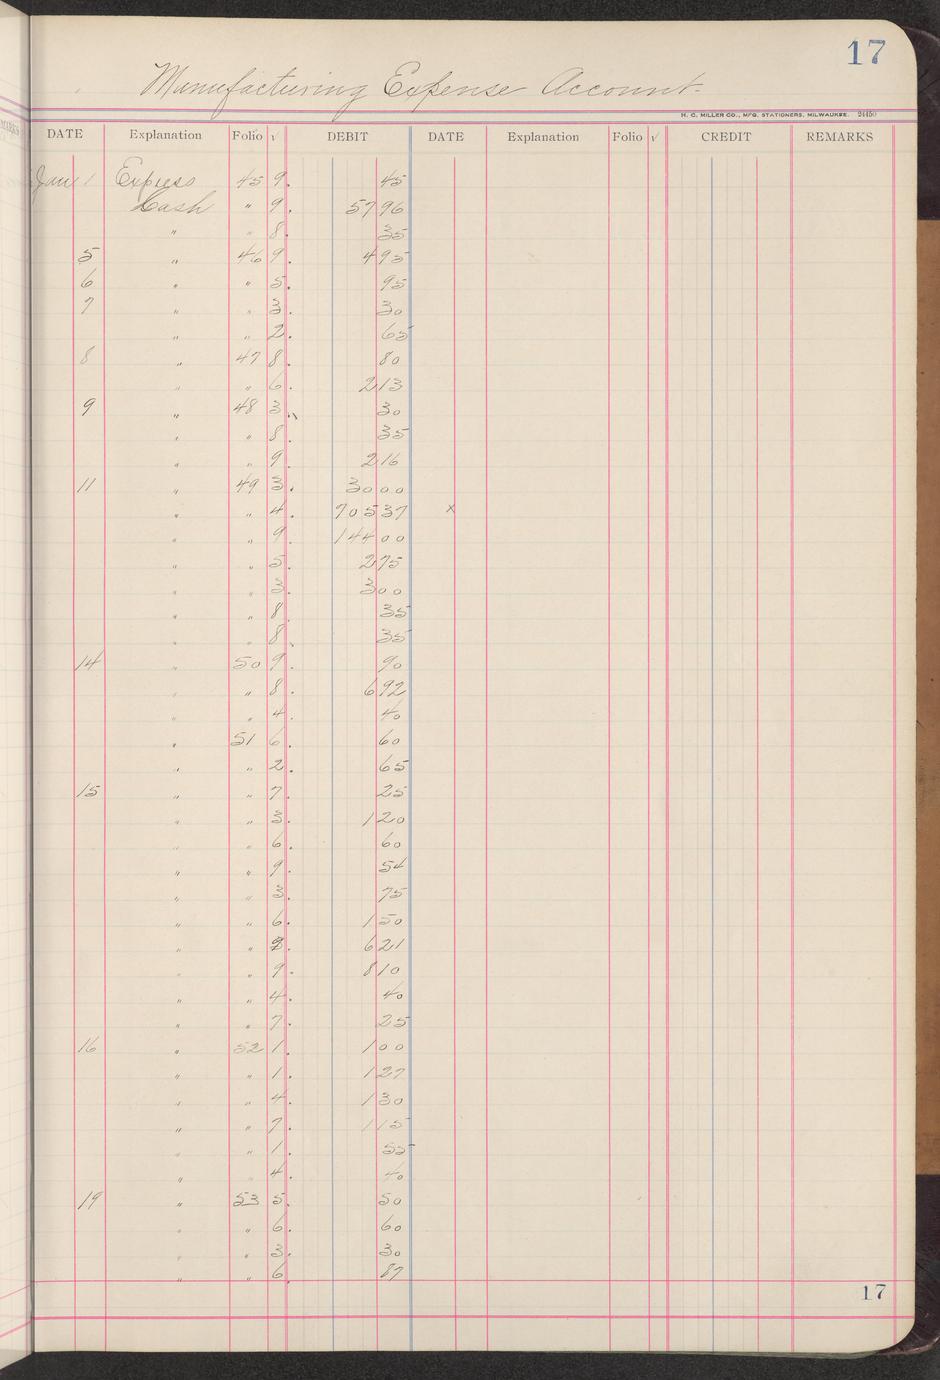 17
Manufacturing Expense Account
H. C. MILLER CO., MFG. STATIONERS, MILWAUKEE. 24450
DATE Explanation Folio √ DEBIT DATE Explanation Folio √ CREDIT REMARKS
Jan 1 Express 45 9. 45
Cash " 9. 57 96
" " 8. 35
5 " 46 9. 4 95
6 " " 5. 95
7 " " 3. 30
" " 2. 65
8 " 47 8. 80
" " 6. 2 13
9 " 48 3. 30
" " 8. 35
" " 9. 2 16
11 " 49 3. 30 00
" " 4. 705 37 x
" " 9. 144 00
" " 5. 2 75
" " 3. 3 00
" " 8. 35
" " 8. 35
14 " 50 9. 90
" " 8. 6 92
" " 4. 40
" 51 6. 60
" " 2. 65
15 " " 7. 25
" " 3. 1 20
" " 6. 60
" " 9. 54
" " 3. 75
" " 6. 1 50
" " 6 21
" " 9. 8 10
" " 4. 40
" " 7. 25
16 " 52 1. 1 00
" " 1. 1 27
" " 4. 1 30
" " 7. 1 15
" " 1. 55
" " 4. 40
19 " 53 5. 50
" " 6. 60
" " 3. 30
" " 6. 87
17